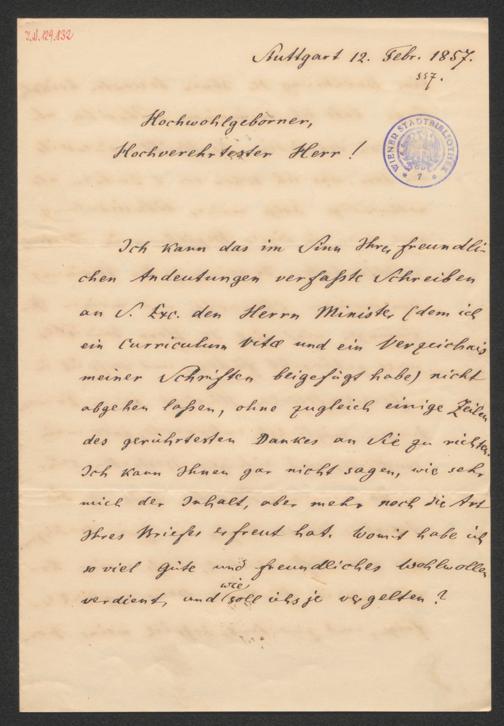 I.N. 129.132
Stuttgart 12. Febr. 1857.
557.
Hochwohlgeborner,
Hochverehrtester Herr!
WIENER STADTBIBLIOTHEK
* 7 *
Ich kann das im Sinn Ihrer freundli-
chen Andeutungen verfaßte Schreiben
an S. Exc. den Herrn Minister (dem ich
ein Curriculum Vitä und ein Verzeichnis
meiner Schriften beigefügt habe) nicht
abgehen laßen, ohne zugleich einige Zeilen
des gerührtesten Dankes an Sie zu richten.
Ich kann Ihnen gar nicht sagen, wie sehr
mich der Inhalt, aber mehr noch die Art
Ihres Briefes erfreut hat. Womit habe ich
so viel Güte und freundliches Wohlwollen
wie
verdient, und soll ichs je vergelten?